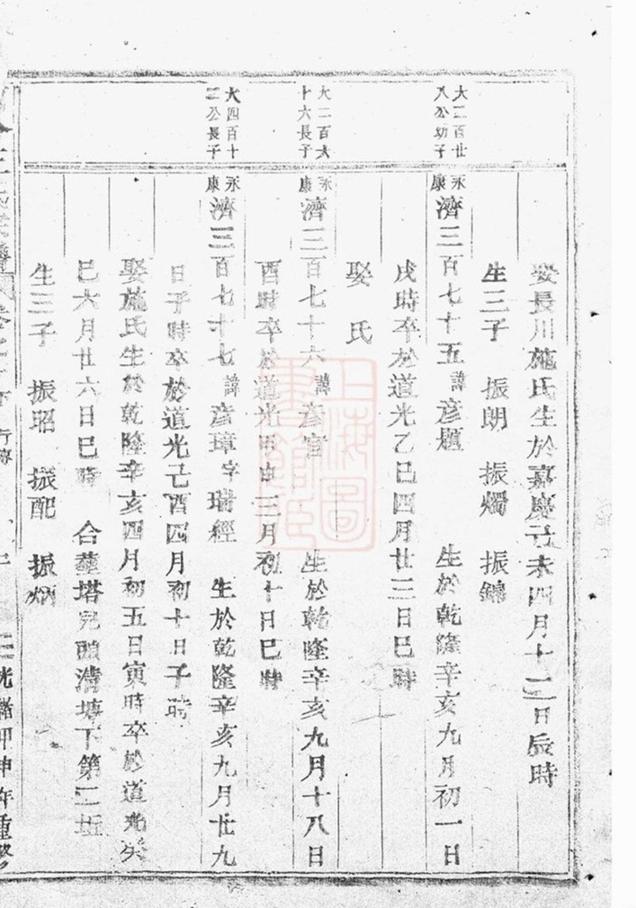 娶長川施氏生於嘉慶己未四月十二日辰時
生三子 振朗 振燭 振錦
大二百廿
八公幼子
永康
濟三百七十五諱彦題 生於乾隆辛亥九月初一日
戌時卒於道光乙巳四月廿三日巳時
娶 氏
大二百六
十六長子
永康
濟三百七十六諱彦官 生於乾隆辛亥九月十八日
酉時卒於道光甲申三月初十日巳時
大四百十
二公長子
永康
濟三百七十七諱彦璋字瑞經 生於乾隆辛亥九月廿九
日子時卒於道光己酉四月初十日子時
娶施氏生於乾隆辛亥四月初五日寅時卒於道光癸
巳六月廿六日巳時 合塟塔兒頭灣塘下第二坵
生三子 振昭 振配 振炳
光緒甲申年重修
上海圖書館藏